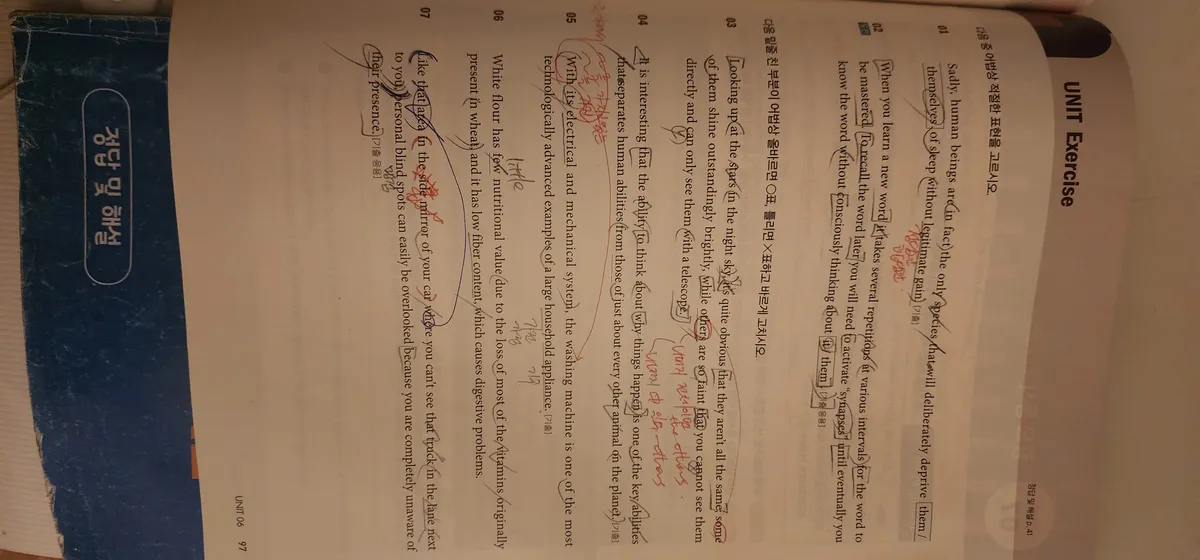 UNIT Exercise
정답 및 해설 p. 41
다음 중 어법상 적절한 표현을 고르시오.
01 Sadly, human beings are in fact the only species that will deliberately deprive them /
themselves of sleep without legitimate gain. [기출]
02 When you learn a new word it takes several repetitions at various intervals for the word to
be mastered. To recall the word later you will need to activate “synapses” until eventually you
know the word without consciously thinking about it / them. [기출 응용]
다음 밑줄 친 부분이 어법상 올바르면 ○표, 틀리면 ×표하고 바르게 고치시오.
03 Looking up at the stars in the night sky, it's quite obvious that they aren't all the same; some
of them shine outstandingly brightly, while others are so faint that you cannot see them
directly and can only see them with a telescope.
나머지 전체이면 the others.
나머지 中 일부 - others
04 It is interesting that the ability to think about why things happen is one of the key abilities
that separates human abilities from those of just about every other animal on the planet. [기출]
05 With its electrical and mechanical system, the washing machine is one of the most
technologically advanced examples of a large household appliance. [기출]
가전 기구
little
06 White flour has few nutritional value due to the loss of most of the vitamins originally
present in wheat, and it has low fiber content, which causes digestive problems.
07 Like that area in the side mirror of your car where you can't see that truck in the lane next
to you, personal blind spots can easily be overlooked because you are completely unaware of
their presence. [기출 응용]
UNIT 06 97
정답 및 해설